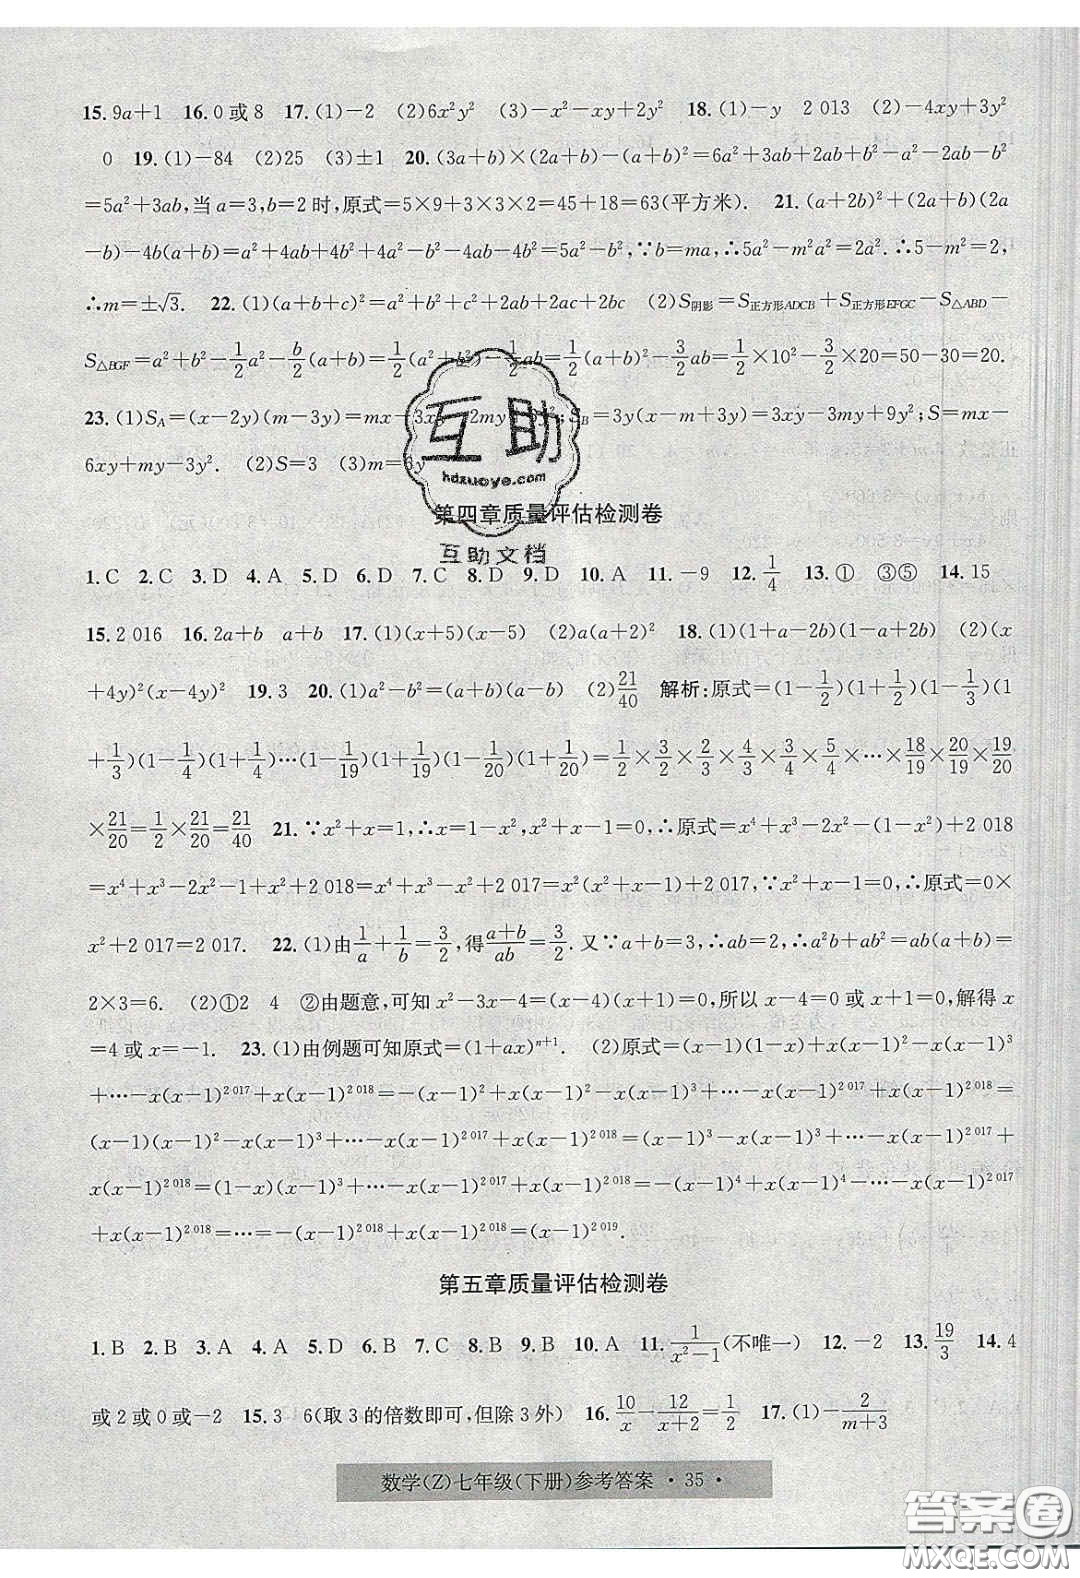 15. 9a+1　16. 0或8　17. (1)－2　(2)6x²y²　(3)－x²－xy+2y²　18. (1)－y　2 013　(2)－4xy+3y²
0　19. (1)－84　(2)25　(3)±1　20. (3a+b)×(2a+b)－(a+b)²=6a²+3ab+2ab+b²－a²－2ab－b²
=5a²+3ab,当a=3,b=2时,原式=5×9+3×3×2=45+18=63(平方米).　21. (a+2b)²+(2a+b)(2a
－b)－4b(a+b)=a²+4ab+4b²+4a²－b²－4ab－4b²=5a²－b²,∵b=ma,∴5a²－m²a²=2a².∴5－m²=2,
∴m=±√3.　22. (1)(a+b+c)²=a²+b²+c²+2ab+2ac+2bc　(2)S阴影=S正方形ADCB+S正方形EFGC－S△ABD－
S△BGF=a²+b²－1/2a²－b/2(a+b)=1/2(a²+b²)－1/2ab=1/2(a+b)²－3/2ab=1/2×10²－3/2×20=50－30=20.
23. (1)S_A=(x－2y)(m－3y)=mx－3x　2my　;S_B=3y(x－m+3y)=3xy－3my+9y²;S=mx－
6xy+my－3y².　(2)S=3　(3)m=6y
第四章质量评估检测卷
互助
hdzuoye.com
互助文档
1. C　2. C　3. D　4. A　5. D　6. D　7. C　8. D　9. D　10. A　11. －9　12. 1/4　13. ①　③⑤　14. 15
15. 2 016　16. 2a+b　a+b　17. (1)(x+5)(x－5)　(2)a(a+2)²　18. (1)(1+a－2b)(1－a+2b)　(2)(x
+4y)²(x－4y)²　19. 3　20. (1)a²－b²=(a+b)(a－b)　(2)21/40　解析:原式=(1－1/2)(1+1/2)(1－1/3)(1
+1/3)(1－1/4)(1+1/4)…(1－1/19)(1+1/19)(1－1/20)(1+1/20)=1/2×3/2×2/3×4/3×3/4×5/4×…×18/19×20/19×19/20
×21/20=1/2×21/20=21/40　21. ∵x²+x=1,∴x=1－x²,x²+x－1=0,∴原式=x⁴+x³－2x²－(1－x²)+2 018
=x⁴+x³－2x²－1+x²+2 018=x⁴+x³－x²+2 017=x²(x²+x－1)+2 017,∵x²+x－1=0,∴原式=0×
x²+2 017=2 017.　22. (1)由1/a+1/b=3/2,得(a+b)/ab=3/2.又∵a+b=3,∴ab=2,∴a²b+ab²=ab(a+b)=
2×3=6.　(2)①2　4　②由题意,可知x²－3x－4=(x－4)(x+1)=0,所以x－4=0或x+1=0,解得x
=4或x=－1.　23. (1)由例题可知原式=(1+ax)ⁿ⁺¹.　(2)原式=(x－1)(1－x)+x(x－1)²－x(x－1)³
+…－x(x－1)²⁰¹⁷+x(x－1)²⁰¹⁸=－(x－1)²+x(x－1)²－x(x－1)³+…－x(x－1)²⁰¹⁷+x(x－1)²⁰¹⁸=
(x－1)(x－1)²－x(x－1)³+…－x(x－1)²⁰¹⁷+x(x－1)²⁰¹⁸=(x－1)³－x(x－1)³+…－x(x－1)²⁰¹⁷+
x(x－1)²⁰¹⁸=(1－x)(x－1)³+…－x(x－1)²⁰¹⁷+x(x－1)²⁰¹⁸=－(x－1)⁴+x(x－1)⁴－…－x(x－1)²⁰¹⁷
+x(x－1)²⁰¹⁸=…=－(x－1)²⁰¹⁸+x(x－1)²⁰¹⁸=(x－1)²⁰¹⁹.
第五章质量评估检测卷
1. B　2. B　3. A　4. A　5. D　6. B　7. C　8. B　9. B　10. A　11. 1/(x²－1)(不唯一)　12. －2　13. 19/3　14. 4
或2或0或－2　15. 3　6(取3的倍数即可,但除3外)　16. 10/x－12/(x+2)=1/2　17. (1)－2/(m+3)
数学(Z)七年级(下册)参考答案　·35·
答案圈
MXQE.COM